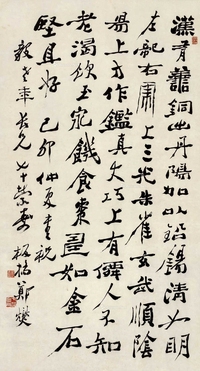 漢有譱銅出丹陽加以鉛錫清如明
左龍右虎尚三光朱雀玄武順陰
陽上方作鑑真大巧上有僊人不知
老渴飲玉泉饑食棗壽如金石
堅且好 己卯仲夏書祝
老年長兄七十榮壽 板橋鄭燮